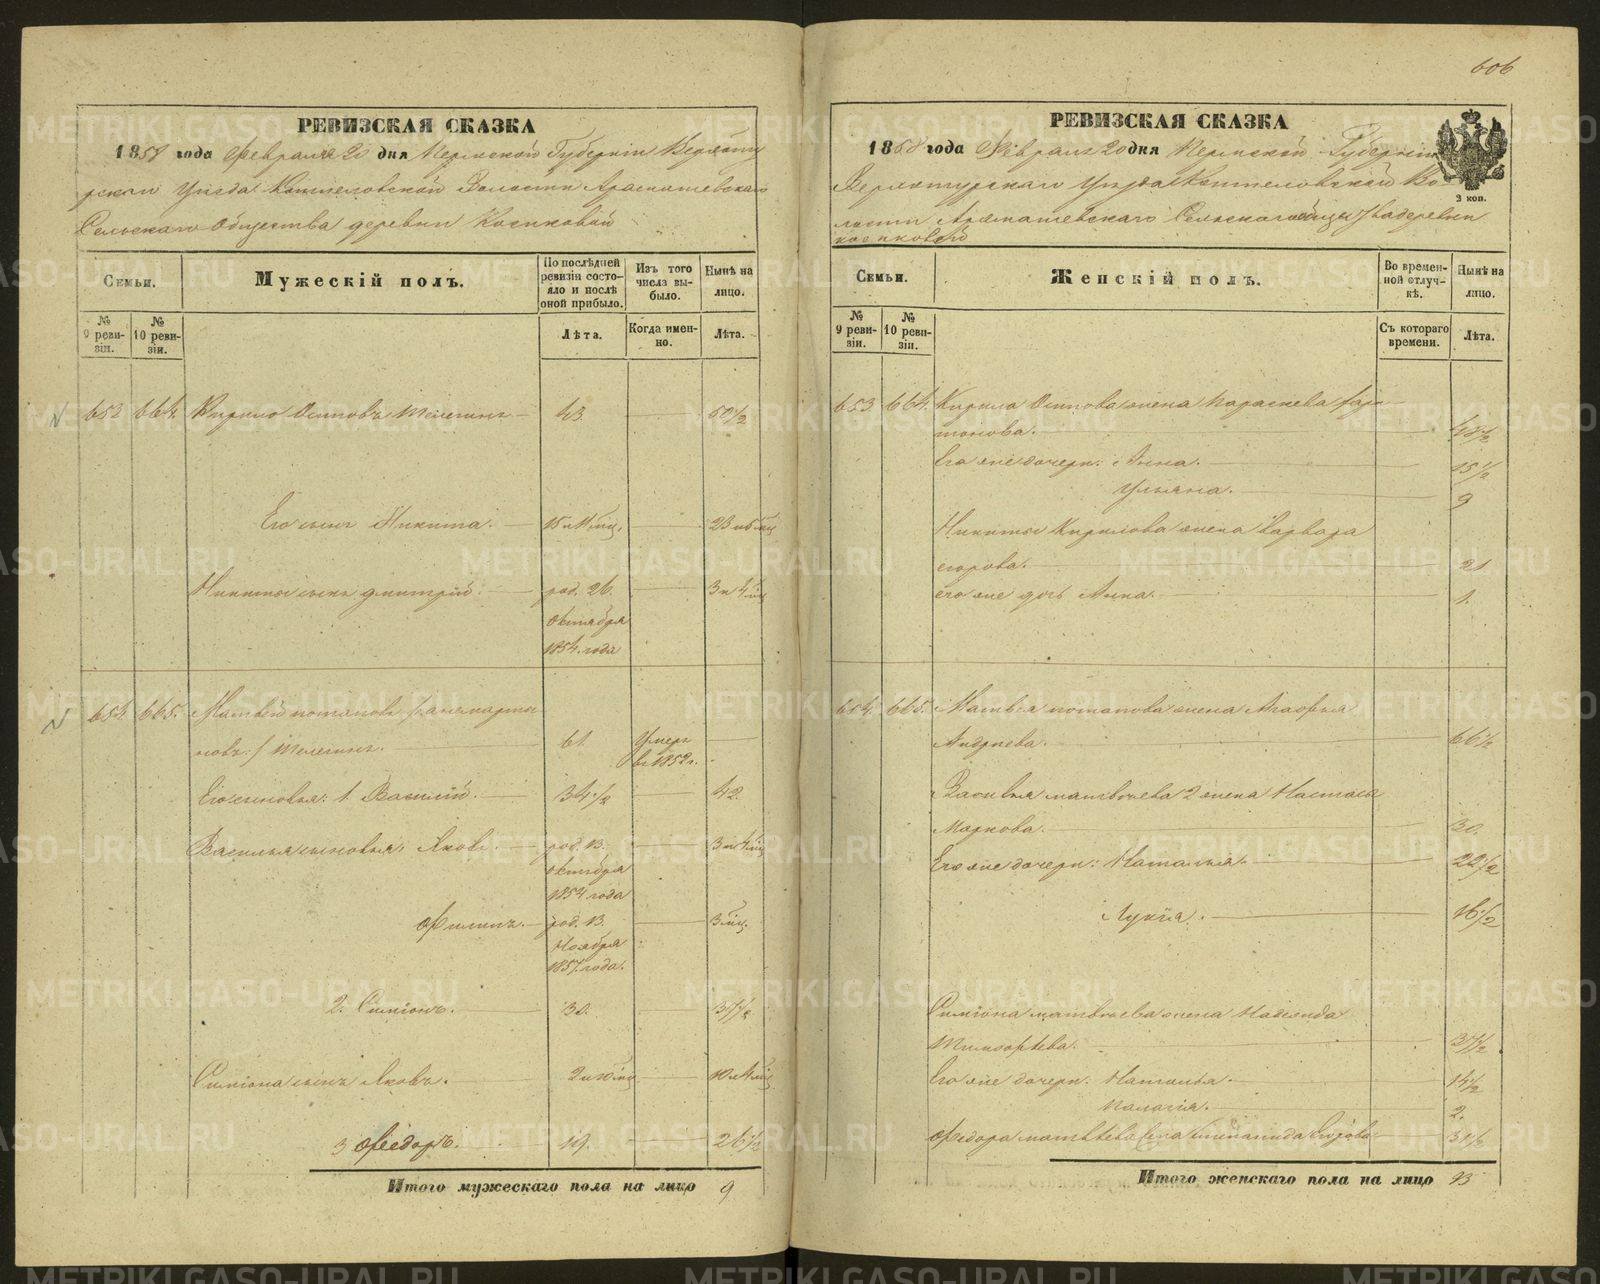 606
РЕВИЗСКАЯ СКАЗКА
1858 года Февраля 20 дня Пермской Губерніи Верхоту
рскаго Уѣзда Коптеловской Волости Арамашевскаго
Сельскаго Общества деревни Косиковой
Семьи.
Мужескій полъ.
По послѣдней ревизіи состояло и послѣ оной прибыло.
Изъ того числа выбыло.
Нынѣ на лицо.
№ 9 ревизіи.
№ 10 ревизіи.
Лѣта.
Когда именно.
Лѣта.
652 664. Кирило Осиповъ Телегинъ 43 50½
Его сынъ Никита. 15 и 11 мѣц. 23 и 5 мц
Никиты сынъ Дмитрій. род. 26. 3 и 4 мц
Октября
1854. года
654. 665. Матвей Потаповъ
новъ:/ Телегинъ. 61. Умеръ
въ 1852 г.
Его сыновья: 1. Василій. 34½ 42.
Василья сыновья: Яковъ. род. 13. 3 и 4 мц
октября
1854 года
Филипъ. род. 13. 3 мц.
Ноября
1857. года.
2. Симіонъ. 30. 37½
Симіона сынъ Яковъ. 2 и 10 мц 10 и 4 мц
3 Ѳедоръ. 19. 26½
Итого мужескаго пола на лицо 9
РЕВИЗСКАЯ СКАЗКА
1858 года Февраля 20 дня Пермской Губерніи
Верхотурскаго Уѣзда Коптеловской Во-
лости Арамашевскаго Сельскаго общества деревни
Косиковой
2 коп.
Семьи.
Женскій полъ.
Во временной отлучкѣ.
Нынѣ на лицо.
№ 9 ревизіи.
№ 10 ревизіи.
Съ котораго времени.
Лѣта.
653 664. Кирила Осипова жена Параскева Хари
тонова. 48½
Его же дочери: Анна. 15½
Ульяна. 9
Никиты Кирилова жена Варвара
Егорова. 21
его же дочь Анна. 1.
654. 665. Матвея Потапова жена Агафья
Андреева. 66½
Василья Матвѣева 2 жена Настасья
Маркова. 30.
Его же дочери: Наталья. 22½
Лукія. 16½
Симіона Матвѣева жена Надежда
Тимофѣева. 37½
Его же дочери: Наталья. 14½
Палагія. 2.
Ѳедора Матвѣева жена Степанида Егорова 31½
Итого женскаго пола на лицо 13
METRIKI.GASO-URAL.RU